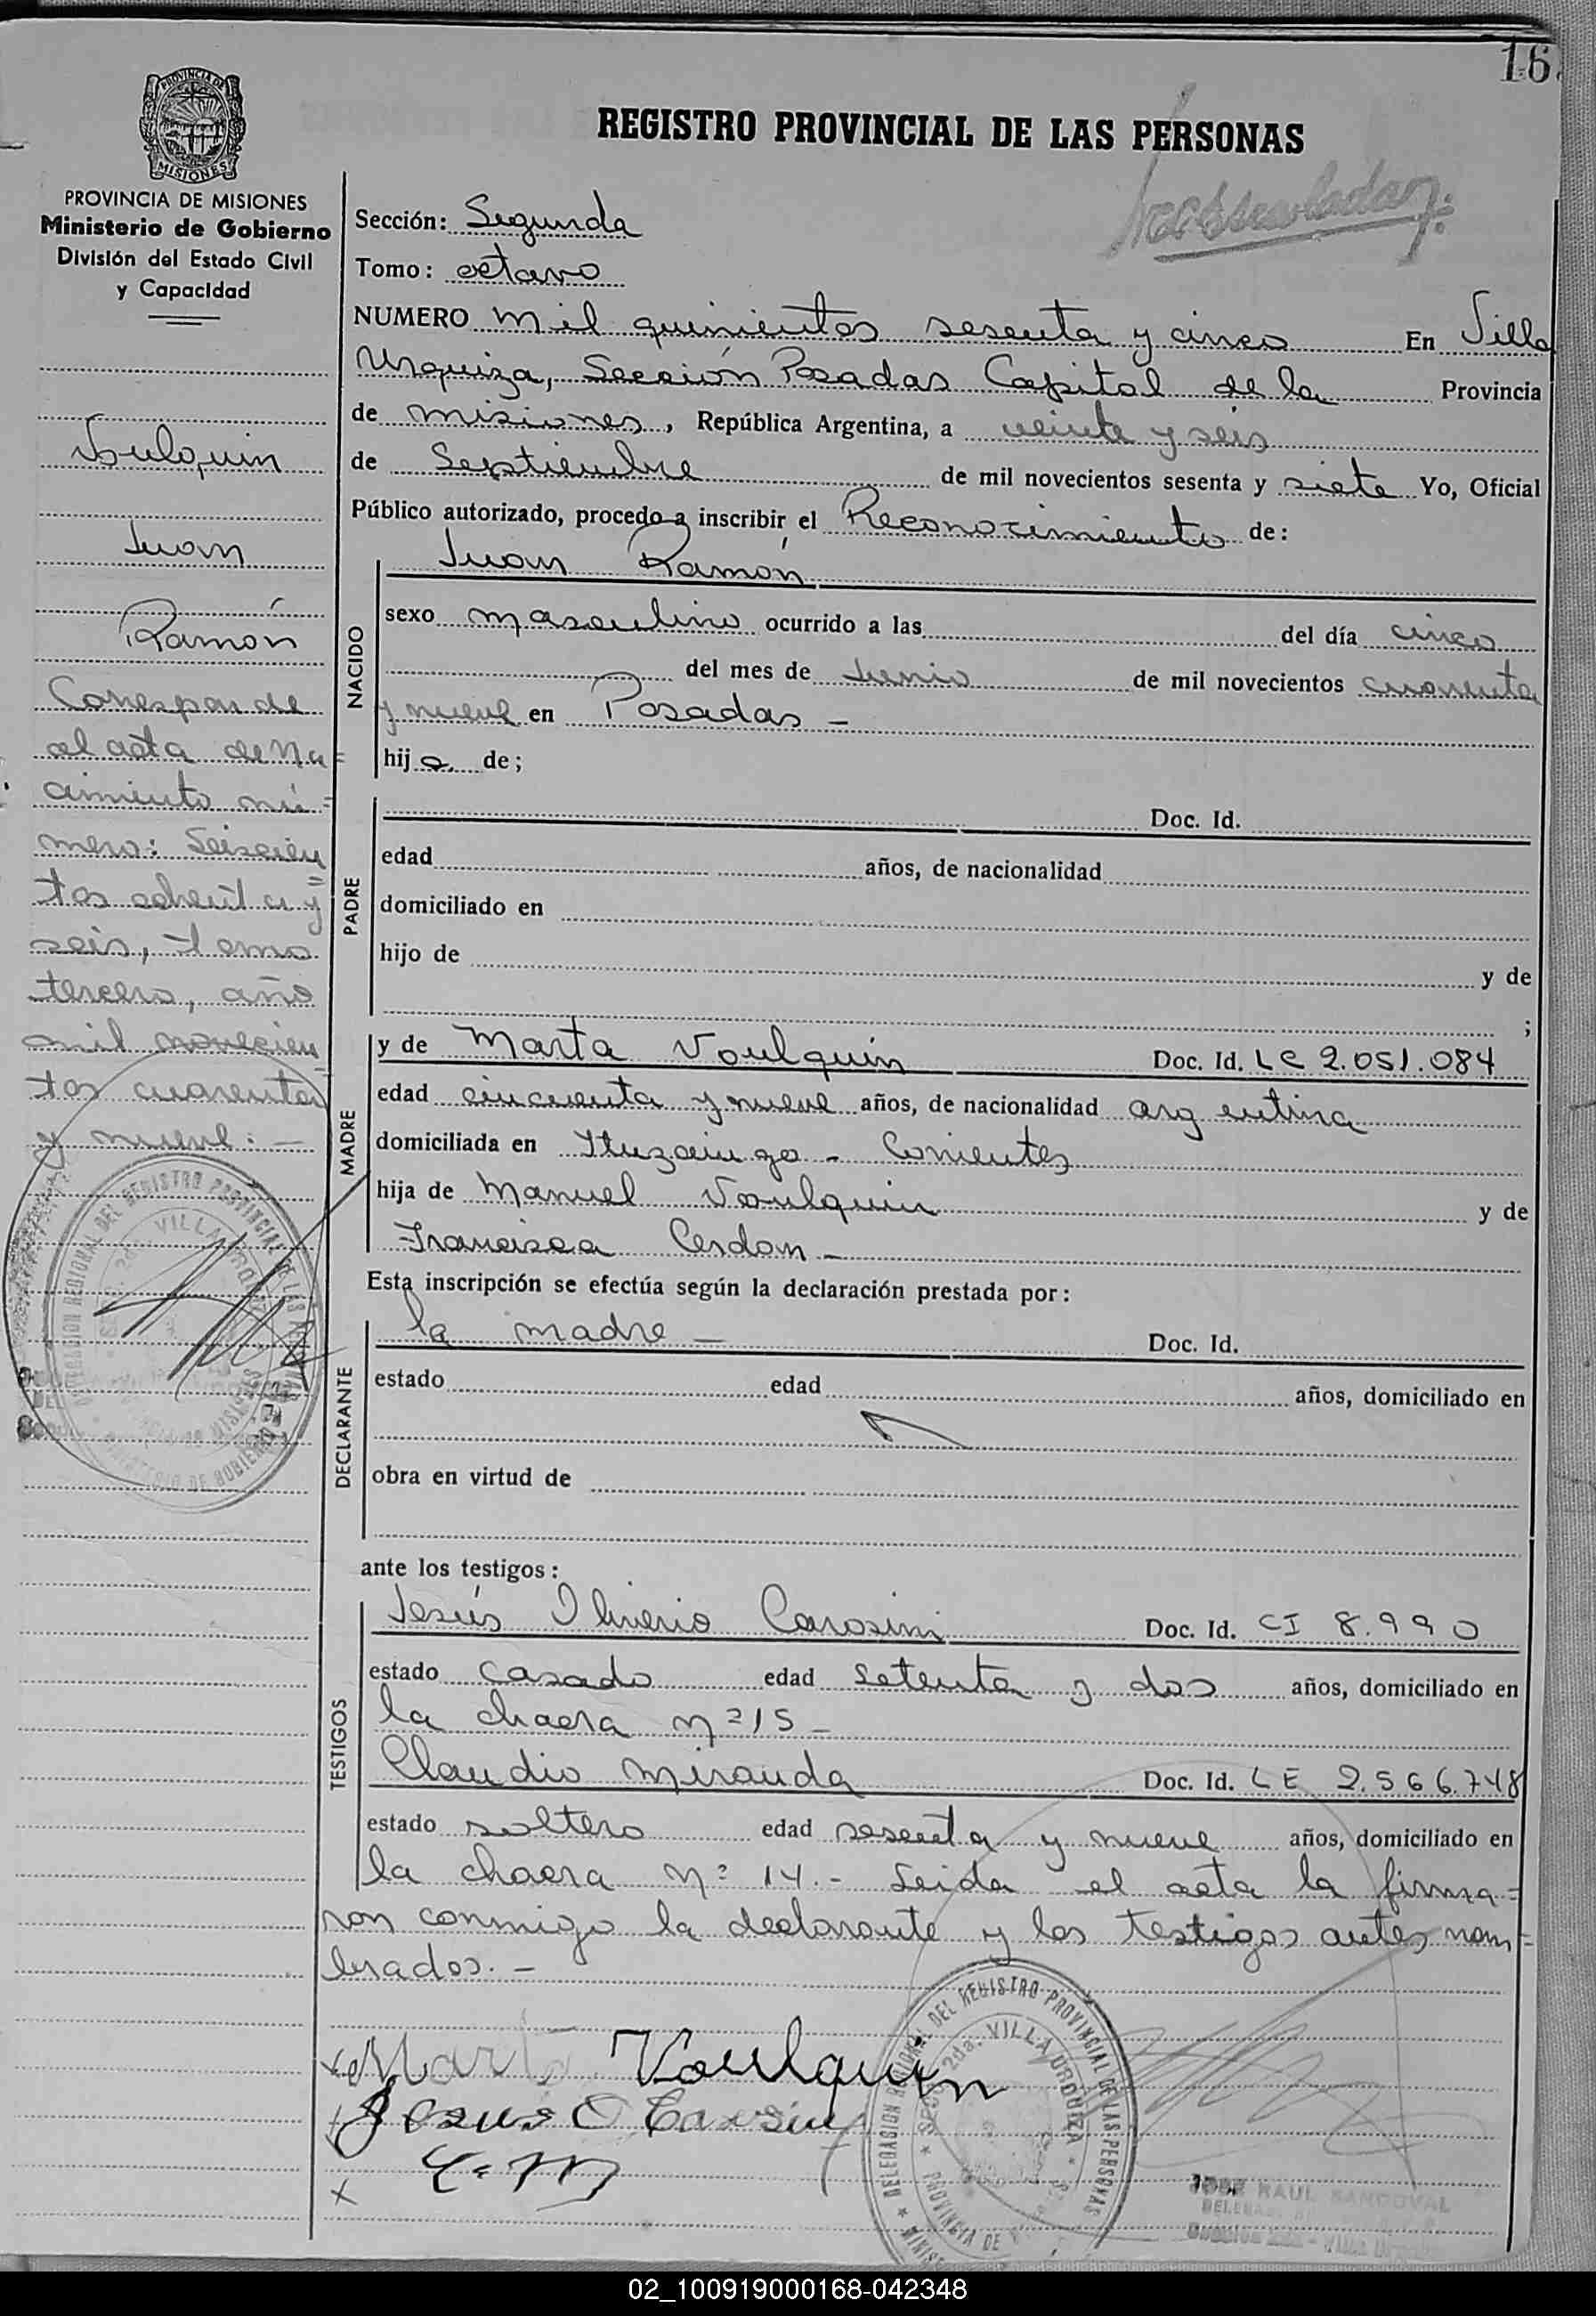 16
PROVINCIA DE
MISIONES
PROVINCIA DE MISIONES
Ministerio de Gobierno
División del Estado Civil
y Capacidad
Voulquin
Juan
Ramón
Corresponde
al acta de Na=
cimiento nú=
mero: Seiscien
tos ochenta y
seis, tomo
tercero, año
mil novecien
tos cuarenta
y nueve: —
REGISTRO PROVINCIAL DE LAS PERSONAS
Sección: Segunda
Tomo: octavo
NUMERO mil quinientos sesenta y cinco En Villa
Urquiza, Sección Posadas Capital de la Provincia
de misiones, República Argentina, a veinte y seis
de Septiembre de mil novecientos sesenta y siete Yo, Oficial
Público autorizado, procedo a inscribir el Reconocimiento de:
NACIDO
Juan Ramón
sexo masculino ocurrido a las del día cinco
del mes de Junio de mil novecientos cuarenta
y nueve en Posadas —
hijo de;
PADRE
Doc. Id.
edad años, de nacionalidad
domiciliado en
hijo de y de
;
MADRE
y de Marta Voulquin Doc. Id. LC 2.051.084
edad cincuenta y nueve años, de nacionalidad argentina
domiciliada en Ituzaingo - Corrientes
hija de Manuel Voulquin y de
Francisca Cerdan —
Esta inscripción se efectúa según la declaración prestada por:
DECLARANTE
la madre — Doc. Id.
estado edad años, domiciliado en
obra en virtud de
ante los testigos:
TESTIGOS
Jesús Oliverio Carosini Doc. Id. CI 8.990
estado casado edad setenta y dos años, domiciliado en
la chacra nº 15 —
Claudio Miranda Doc. Id. LE 2.566.748
estado soltero edad sesenta y nueve años, domiciliado en
la chacra Nº 14.- Leida el acta la firma=
ron conmigo la declarante y los testigos antes nom=
brados. —
Marta Voulquin
Jesus O Carosini
C. M
DELEGACION REGIONAL DEL REGISTRO PROVINCIAL DE LAS PERSONAS
SECC. 2da. VILLA URQUIZA
PROVINCIA DE
JOSE RAUL SANDOVAL
02_100919000168-042348